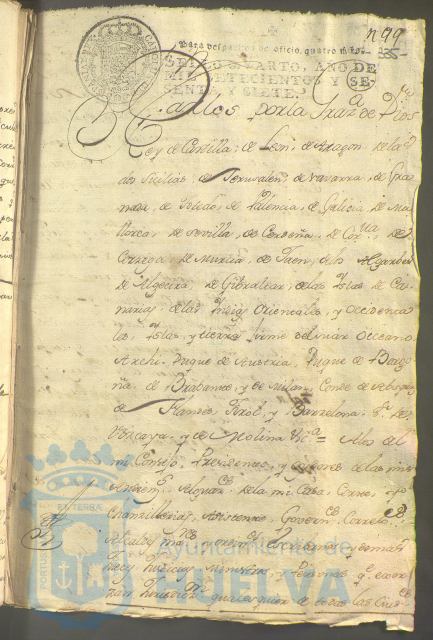 nº 99
Para despachos de oficio, quatro mrs.
235
SELLO QUARTO, AÑO DE
MIL SETECIENTOS Y SE-
SENTA Y SIETE.
Carlos por la Graª de Dios
Rey de Castilla, de Leon, de Aragon, de las
dos Sicilias, de Jerusalen, de Navarra, de Gra
nada, de Toledo, de Valencia, de Galicia, de Ma
llorca, de Sevilla, de Cerdeña, de Corᵛᵃ, de
Corzega, de Murcia, de Jaen, de los Algarbes
de Algecira, de Gibraltar, de las Yslas de Ca
narias, de las Yndias Orientales, y Occidenta
les, Yslas, y tierra firme del mar Occeano
Archi-Duque de Austria, Duque de Borgo
ña, de Brabante, y de Milan, Conde de Abspurg
de Flandes, Tirol, y Barzelona, Sr. de
Vizcaya, y de Molina &cª = A los del
mi Consejo, Presidente, y Oydores de las mis
Audienˢ Alguacˢ de la mi Casa, Corte, y
Chanzillerias, Asistente, Governˢ Correxˢ
Alcaldes mayˢ y ordinˢ y demas
Juezes, Justicias, Ministros, y Personas qᵉ exer
zan Jurisdⁿ qualesquier de todas las Ciudˢ
Ayuntamiento de
HUELVA